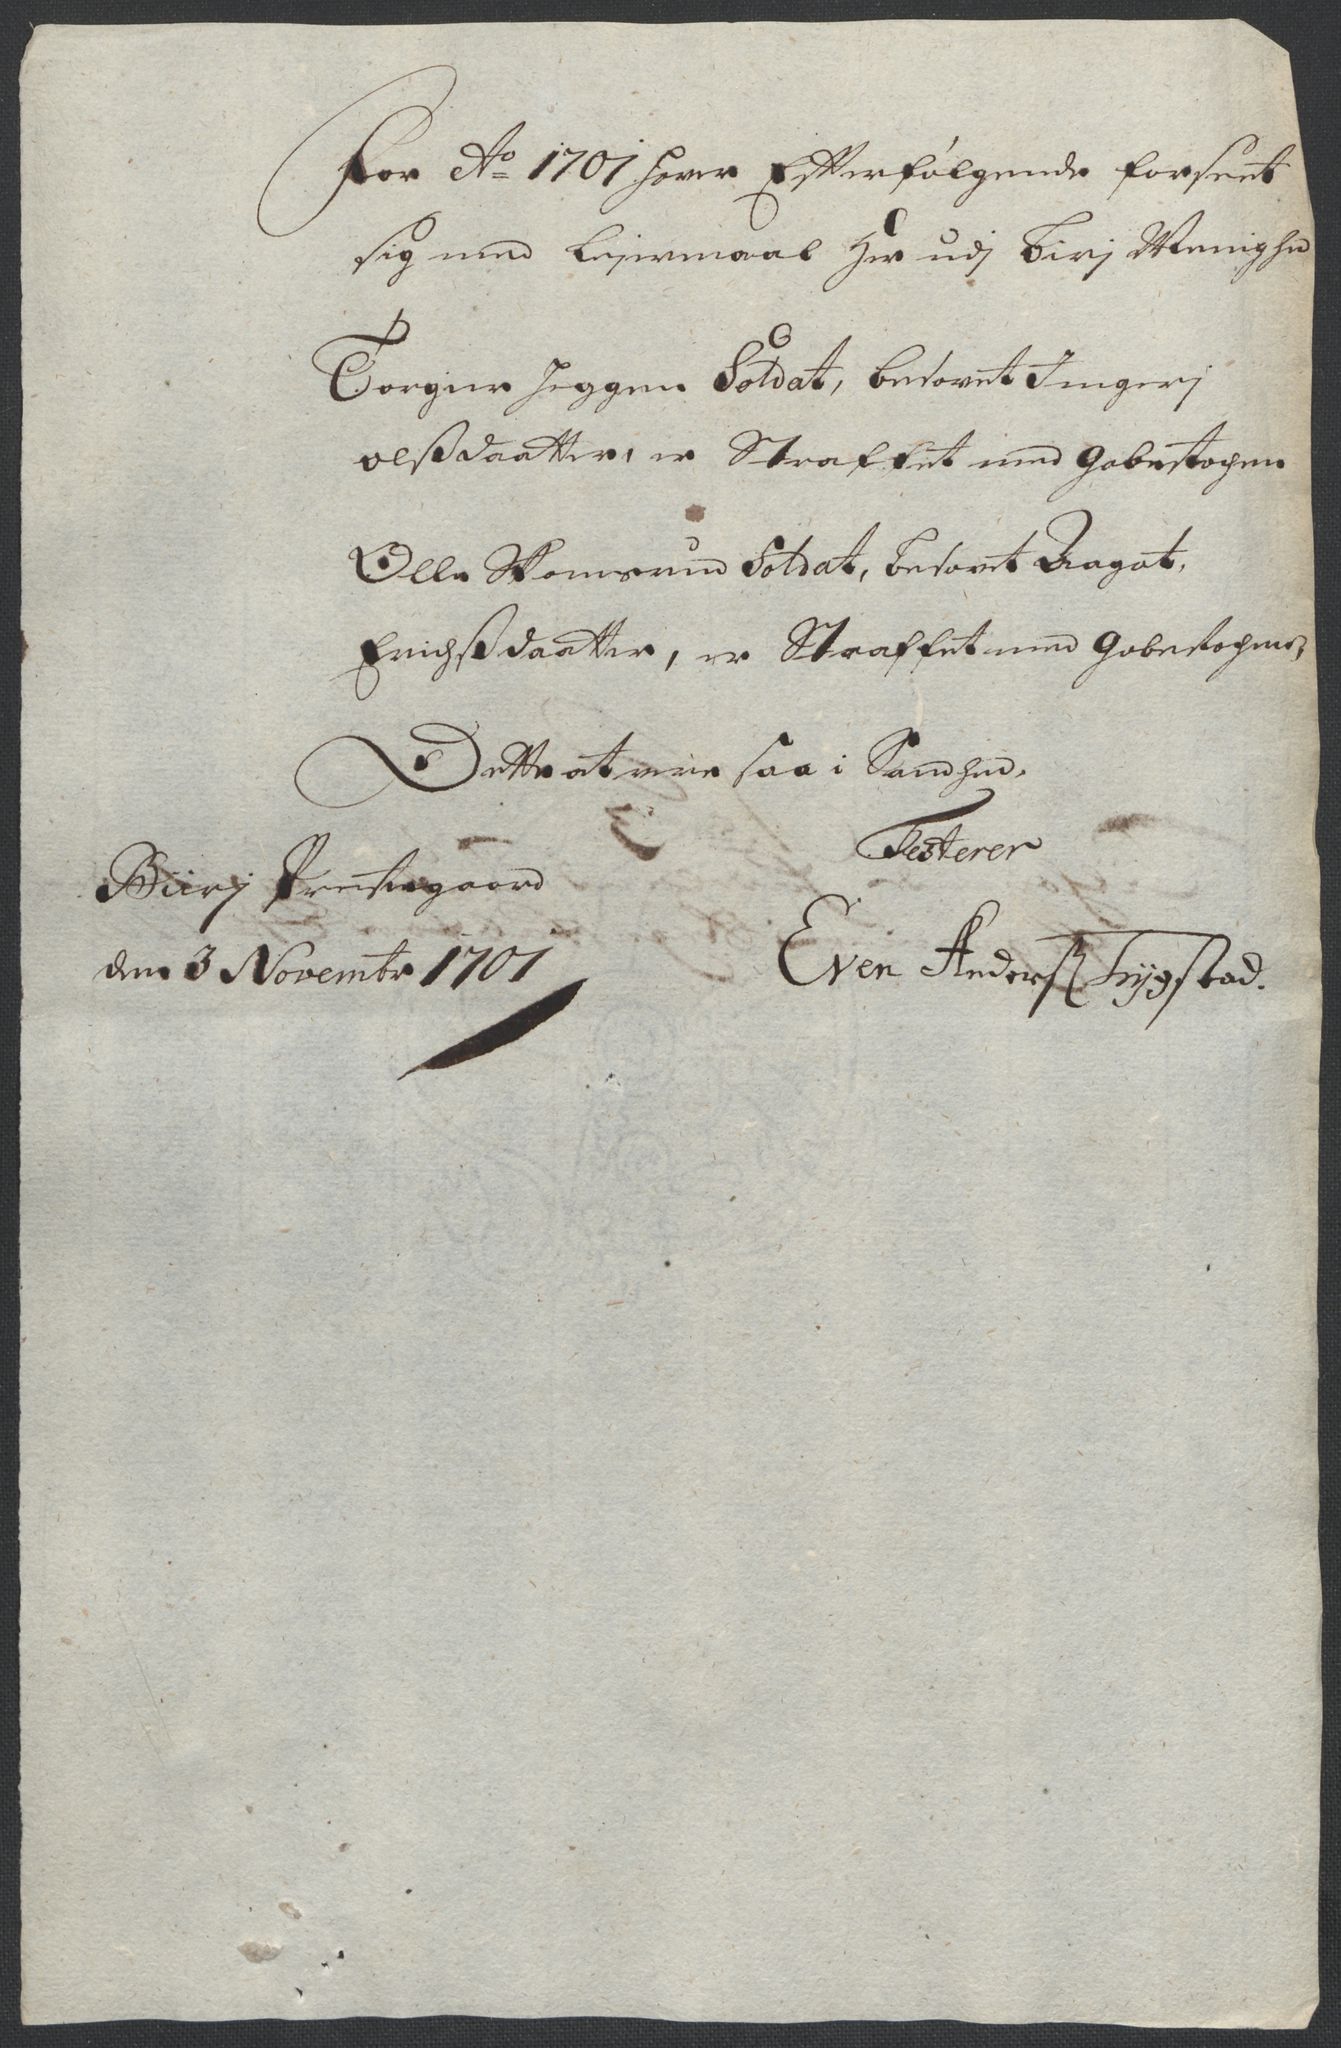 For Ao 1701 hawer Efterfølgende forseet
sig med Leiermaal Her udj Birj Menighed
Torgier Heggen Soldat, besovet Ingerj
olsßdaatter, er Straffet med Gabestochen
Olle Skomsrud Soldat, besovet Ragat,
Erichsßdaatter, er Straffet med Gabestochen,
Dette at vere saa i Sandhed,
Testerer
Biirj Prestegaard
den 3 Novembr 1701
Even Anderß Trygstad.